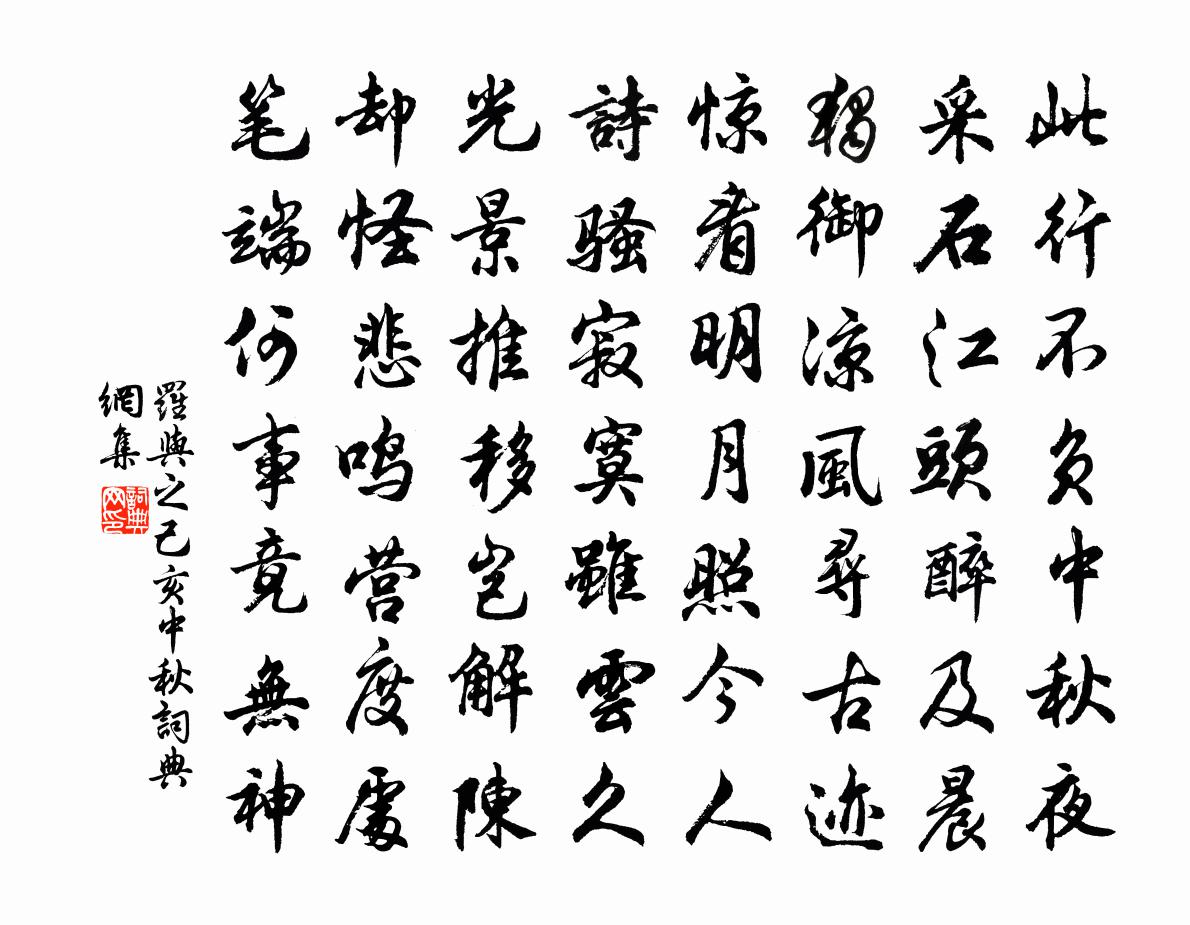 此行不负中秋夜
采石江頭醉及晨
獨御涼風尋古迹
惊看明月照今人
詩骚寂寞雖雲久
光景推移岂解陳
却怪悲鸣营度處
笔端何事竟無神
羅與之己亥中秋詞典
網集
詞典
网印